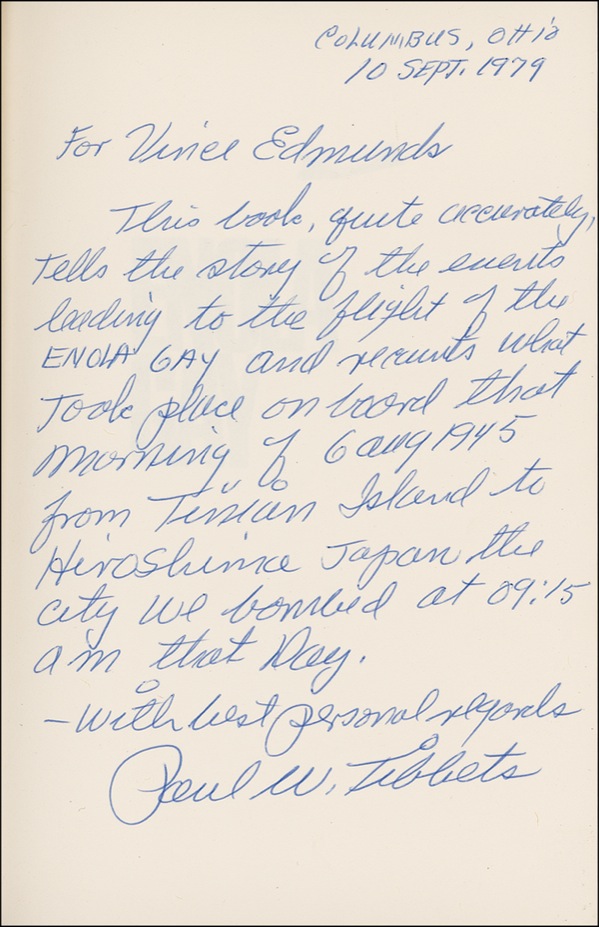 COLUMBUS, OHIO
10 SEPT. 1979
For Vince Edmunds
This book, quite accurately,
tells the story of the events
leading to the flight of the
ENOLA GAY and recounts what
Took place on board that
morning of 6 aug 1945
from Tinian Island to
Hiroshima Japan the
city we bombed at 09:15
am that Day.
- With best personal regards
Paul W. Tibbets